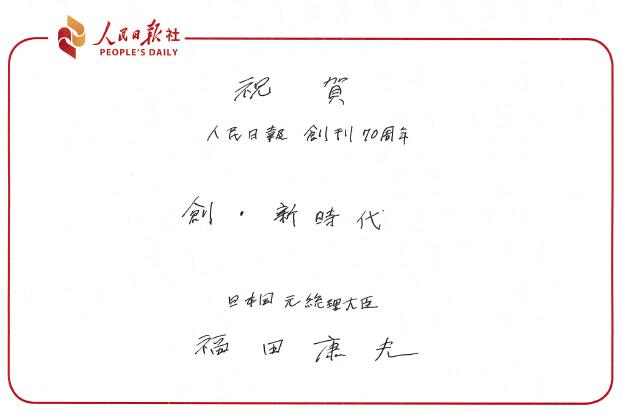 人民日报社
PEOPLE'S DAILY
祝 賀
人民日報 創刊70周年
創・新時代
日本国元総理大臣
福田康夫